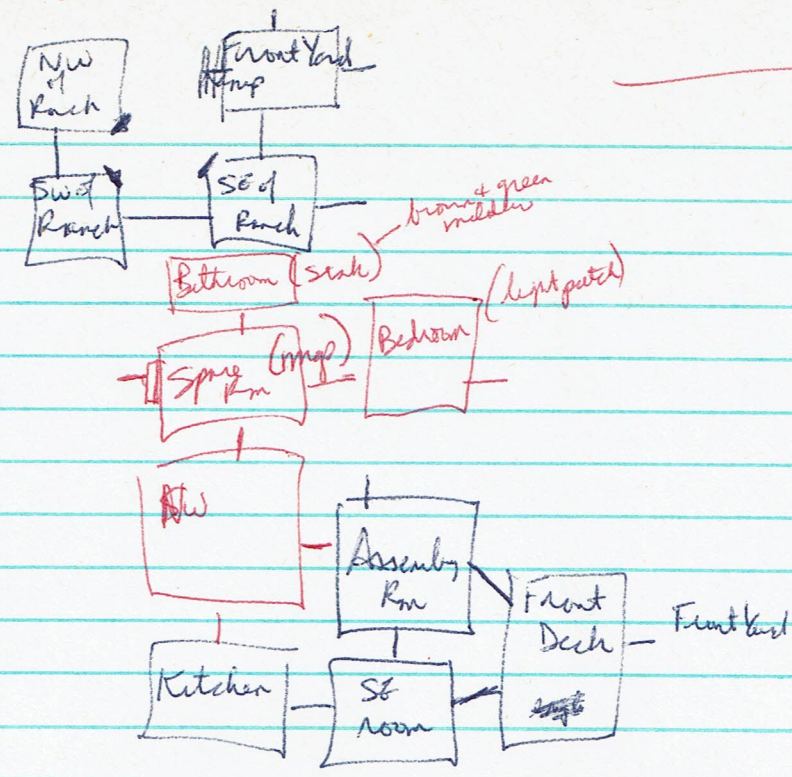 NW
of
Ranch
Front Yard
SW of
Ranch
SE of
Ranch
brown + green
mildew
Bathroom (sink)
(light patch)
Spare
Rm
(rug)
Bedroom
NW
Assembly
Rm
Front
Deck
Front Yard
Kitchen
SE
room